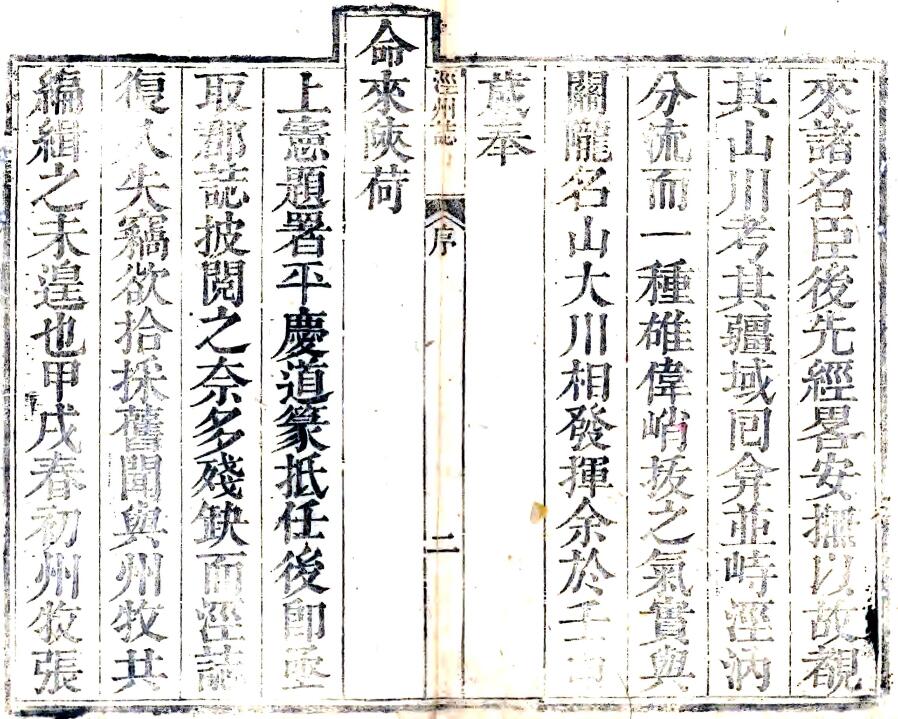 來諸名臣後先經畧安撫以故覩
其山川考其疆域回弇並峙涇汭
分流而一種雄偉峭拔之氣實與
關隴名山大川相發揮余於壬
歲奉
涇州誌 序 二
命來陝荷
上憲題署平慶道篆抵任後卽亟
取郡誌披閱之奈多殘缺而涇誌
復久失欲拾採舊聞與州牧共
編緝之未遑也甲戌春初州牧張